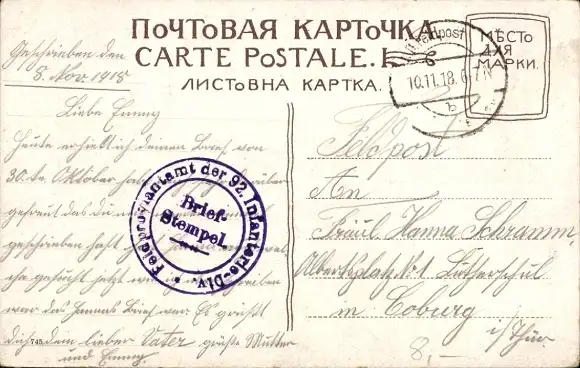 ПОЧТОВАЯ КАРТОЧКА.
CARTE POSTALE.
ЛИСТОВНА КАРТКА.
МѢСТО
ДЛЯ
МАРКИ.
Feldpost
10.11.18. 6-7 N
b
Geschrieben den
8. Nov 1918
Liebe Emmy
Heute erhielt ich deinen Brief von
30.ten Oktober
gefreut das du
geschrieben hast
jetzt
war das Hannas Brief war Es grüßt
dich dein lieber Vater grüße Mutter
und Emmy.
Feldproviantamt der 92. Infanterie-Div.
Brief-
Stempel.
745
Feldpost
An
Fräul. Hanna Schramm,
Albertsplatz Nr 1 Lutherschul
in Coburg
i/Thür
8,–